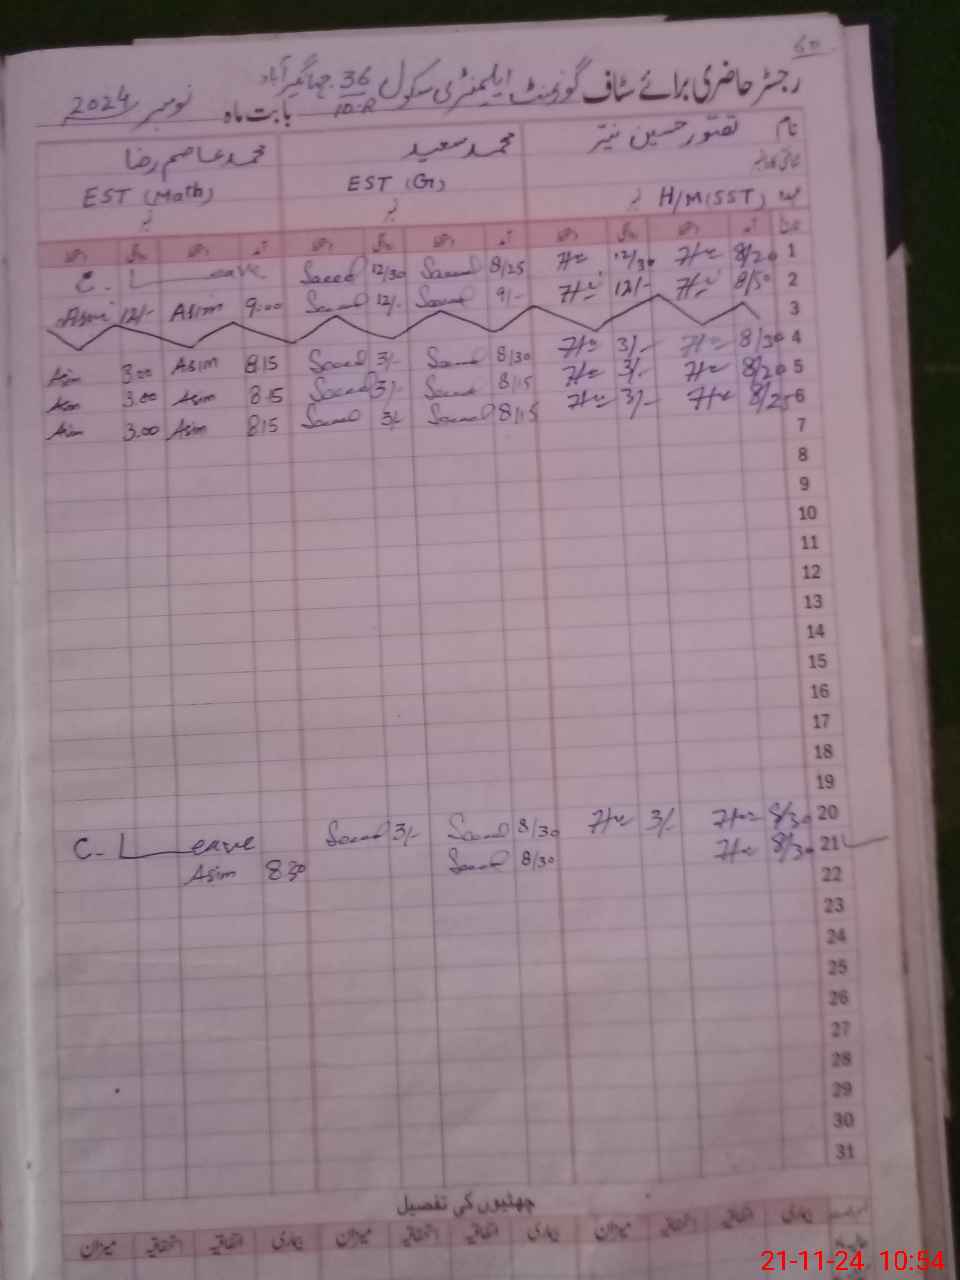 60
رجسٹر حاضری برائے سٹاف گورنمنٹ ایلیمنٹری سکول 36 جہانگیر آباد
10-R بابت ماہ نومبر 2024
نام تصور حسین نیئر محمد سعید محمد عاصم رضا
H/M(SST) EST (G) EST (Math)
1 8/20 12/30 8/25 Saeed 12/30 Saeed C. Leave
2 8/50 12/- 9/- Saeed 12/- Saeed 9:00 Asim 12/- Asim
3
4 8/30 3/- 8/30 Saeed 3/- Saeed 815 Asim 3.00 Asim
5 8/20 3/- 8/15 Saeed 3/- Saeed 815 Asim 3.00 Asim
6 8/25 3/- 8/15 Saeed 3/- Saeed 815 Asim 3.00 Asim
7
8
9
10
11
12
13
14
15
16
17
18
19
20 8/30 3/- 8/30 Saeed 3/- Saeed C. Leave
21 8/30 8/30 Saeed 830 Asim
22
23
24
25
26
27
28
29
30
31
چھٹیوں کی تفصیل
بیماری اتفاقیہ میزان بیماری اتفاقیہ میزان بیماری اتفاقیہ میزان
21-11-24 10:54